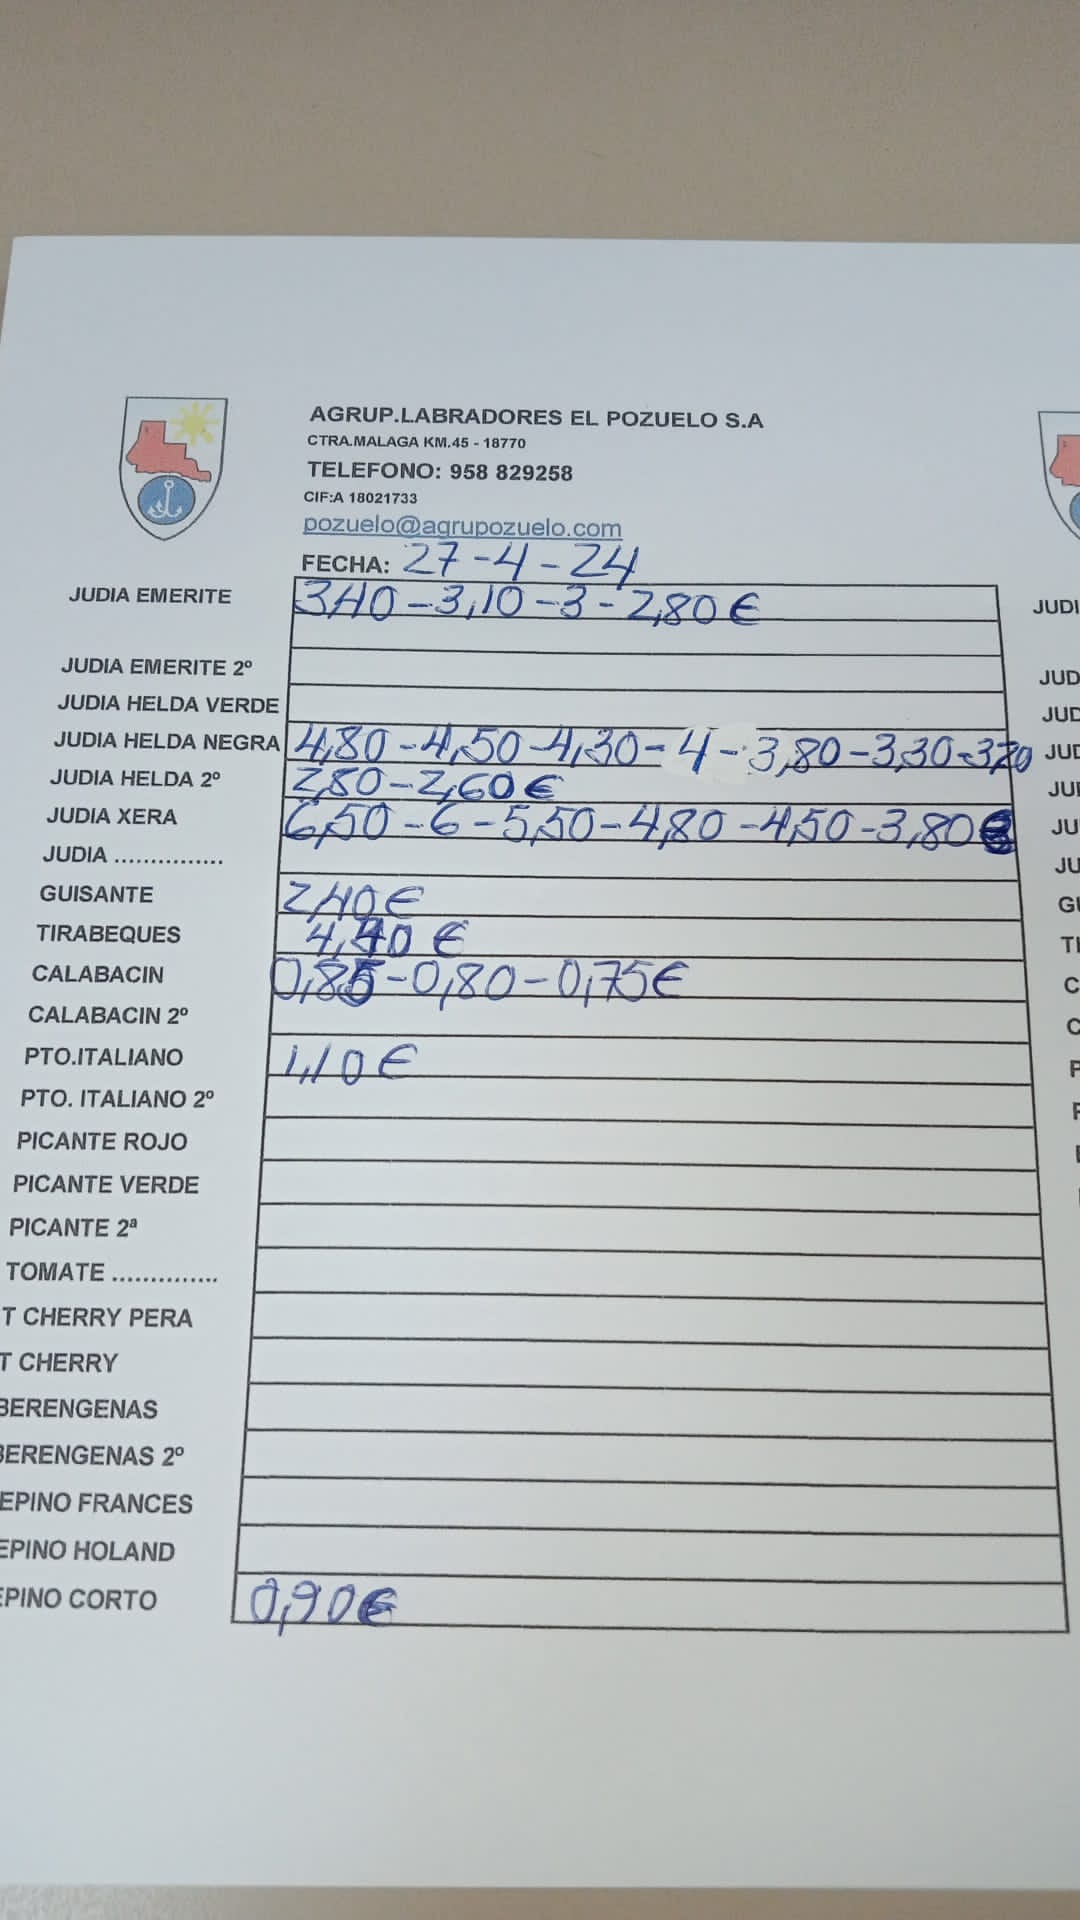 AGRUP.LABRADORES EL POZUELO S.A
CTRA.MALAGA KM.45 - 18770
TELEFONO: 958 829258
CIF:A 18021733
pozuelo@agrupozuelo.com
FECHA: 27-4-24
JUDIA EMERITE 3,40-3,10-3-2,80€ JUDI
JUDIA EMERITE 2º JUD
JUDIA HELDA VERDE JUD
JUDIA HELDA NEGRA 4,80-4,50-4,30-4-3,80-3,30-3,20 JUD
JUDIA HELDA 2º 2,80-2,60€ JU
JUDIA XERA 6,50-6-5,50-4,80-4,50-3,80€ JU
JUDIA ............... JU
GUISANTE 2,40€ GU
TIRABEQUES €
CALABACIN 0,85-0,80-0,75€ C
CALABACIN 2º C
PTO.ITALIANO 1,10€ P
PTO. ITALIANO 2º
PICANTE ROJO
PICANTE VERDE
PICANTE 2ª
TOMATE ..............
T CHERRY PERA
T CHERRY
BERENGENAS
BERENGENAS 2º
EPINO FRANCES
EPINO HOLAND
EPINO CORTO 0,90€